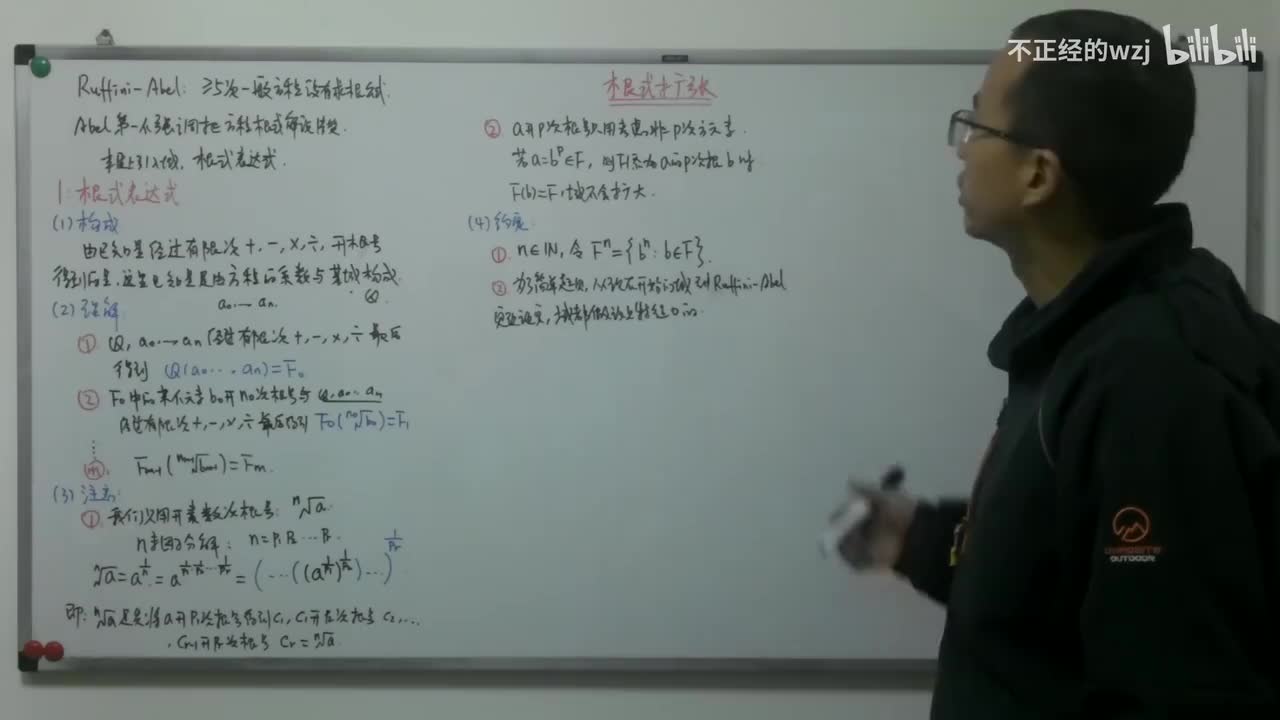 不正经的wzj bilibili
根式扩张
Ruffini-Abel: ≥5次一般方程没有求根公式.
Abel第一个强调把方程根式解
本质上引入域, 根式表达式.
1. 根式表达式
(1) 构成
由已知量经过有限次 +, -, ×, ÷, 开根号
得到的量. 这里已知量是由方程的系数与基域构成.
a₀ … aₙ. Q.
(2) 理解
① Q, a₀ … aₙ 经过有限次 +, -, ×, ÷ 最后
得到 Q(a₀ … aₙ) = F₀
② F₀中的某个元素b₀开n₀次根号与 Q, a₀ … aₙ
经过有限次 +, -, ×, ÷ 最后得到 F₀(ⁿ⁰√b₀) = F₁
⋮
(m) Fₘ₋₁(ⁿᵐ⁻¹√bₘ₋₁) = Fₘ.
(3) 注意:
① 我们只用开素数次根号: ⁿ√a.
n素因子分解: n = P₁P₂ … Pᵣ.
ⁿ√a = a^{1/n} = a^{1/P₁·1/P₂…1/Pᵣ} = (…((a^{1/P₁})^{1/P₂})…)^{1/Pᵣ}
即: ⁿ√a 是先将a开P₁次根号得到C₁, C₁开P₂次根号 C₂, …
, Cᵣ₋₁开Pᵣ次根号 Cᵣ = ⁿ√a.
② a开p次根号只用考虑非p次方元素.
若 a = bᵖ ∈ F, 则F添加a的p次根b时
F(b) = F, 域不会扩大.
(4) 约定:
① n∈IN, 令 Fⁿ = {bⁿ : b∈F}.
② 为简单起见, 从现在开始讨论域到Ruffini-Abel
定理证完, 域都假设是特征0的.
OUTDOOR